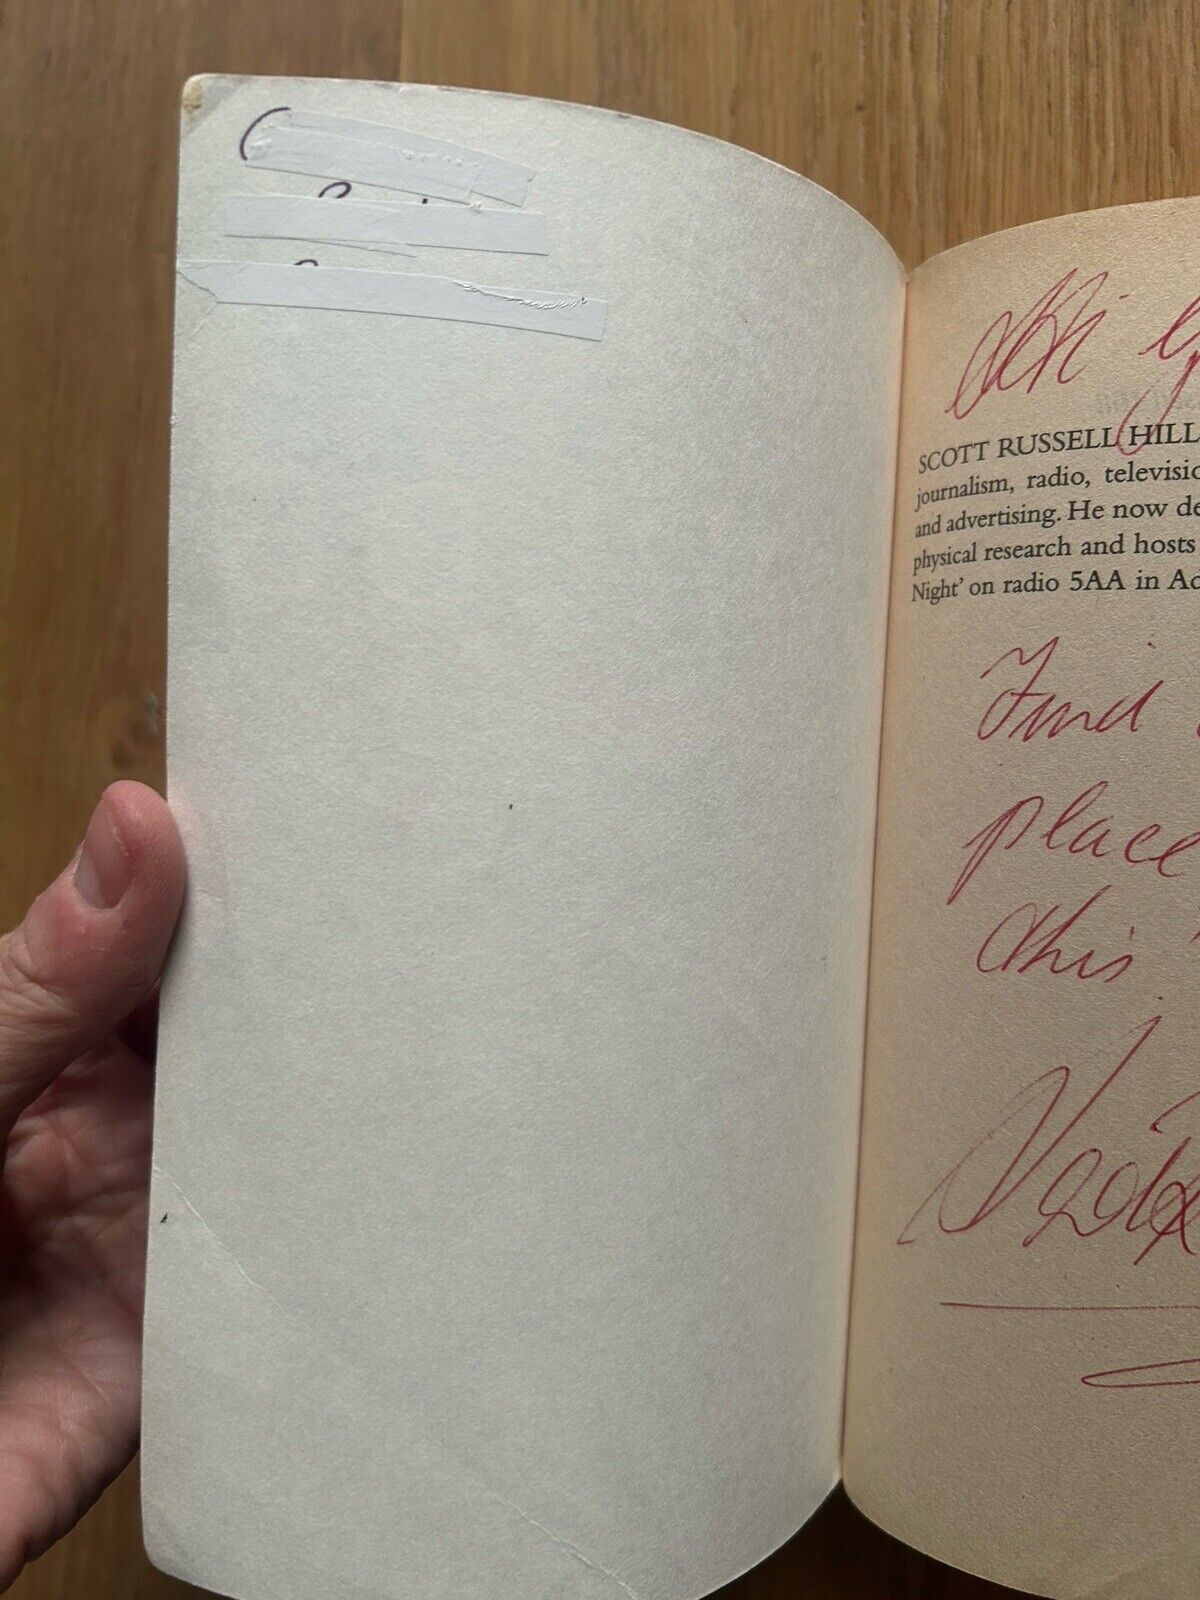 Hi
SCOTT RUSSELL HILL
journalism, radio, televisio
and advertising. He now de
physical research and hosts
Night' on radio 5AA in Ad
Find
place
this